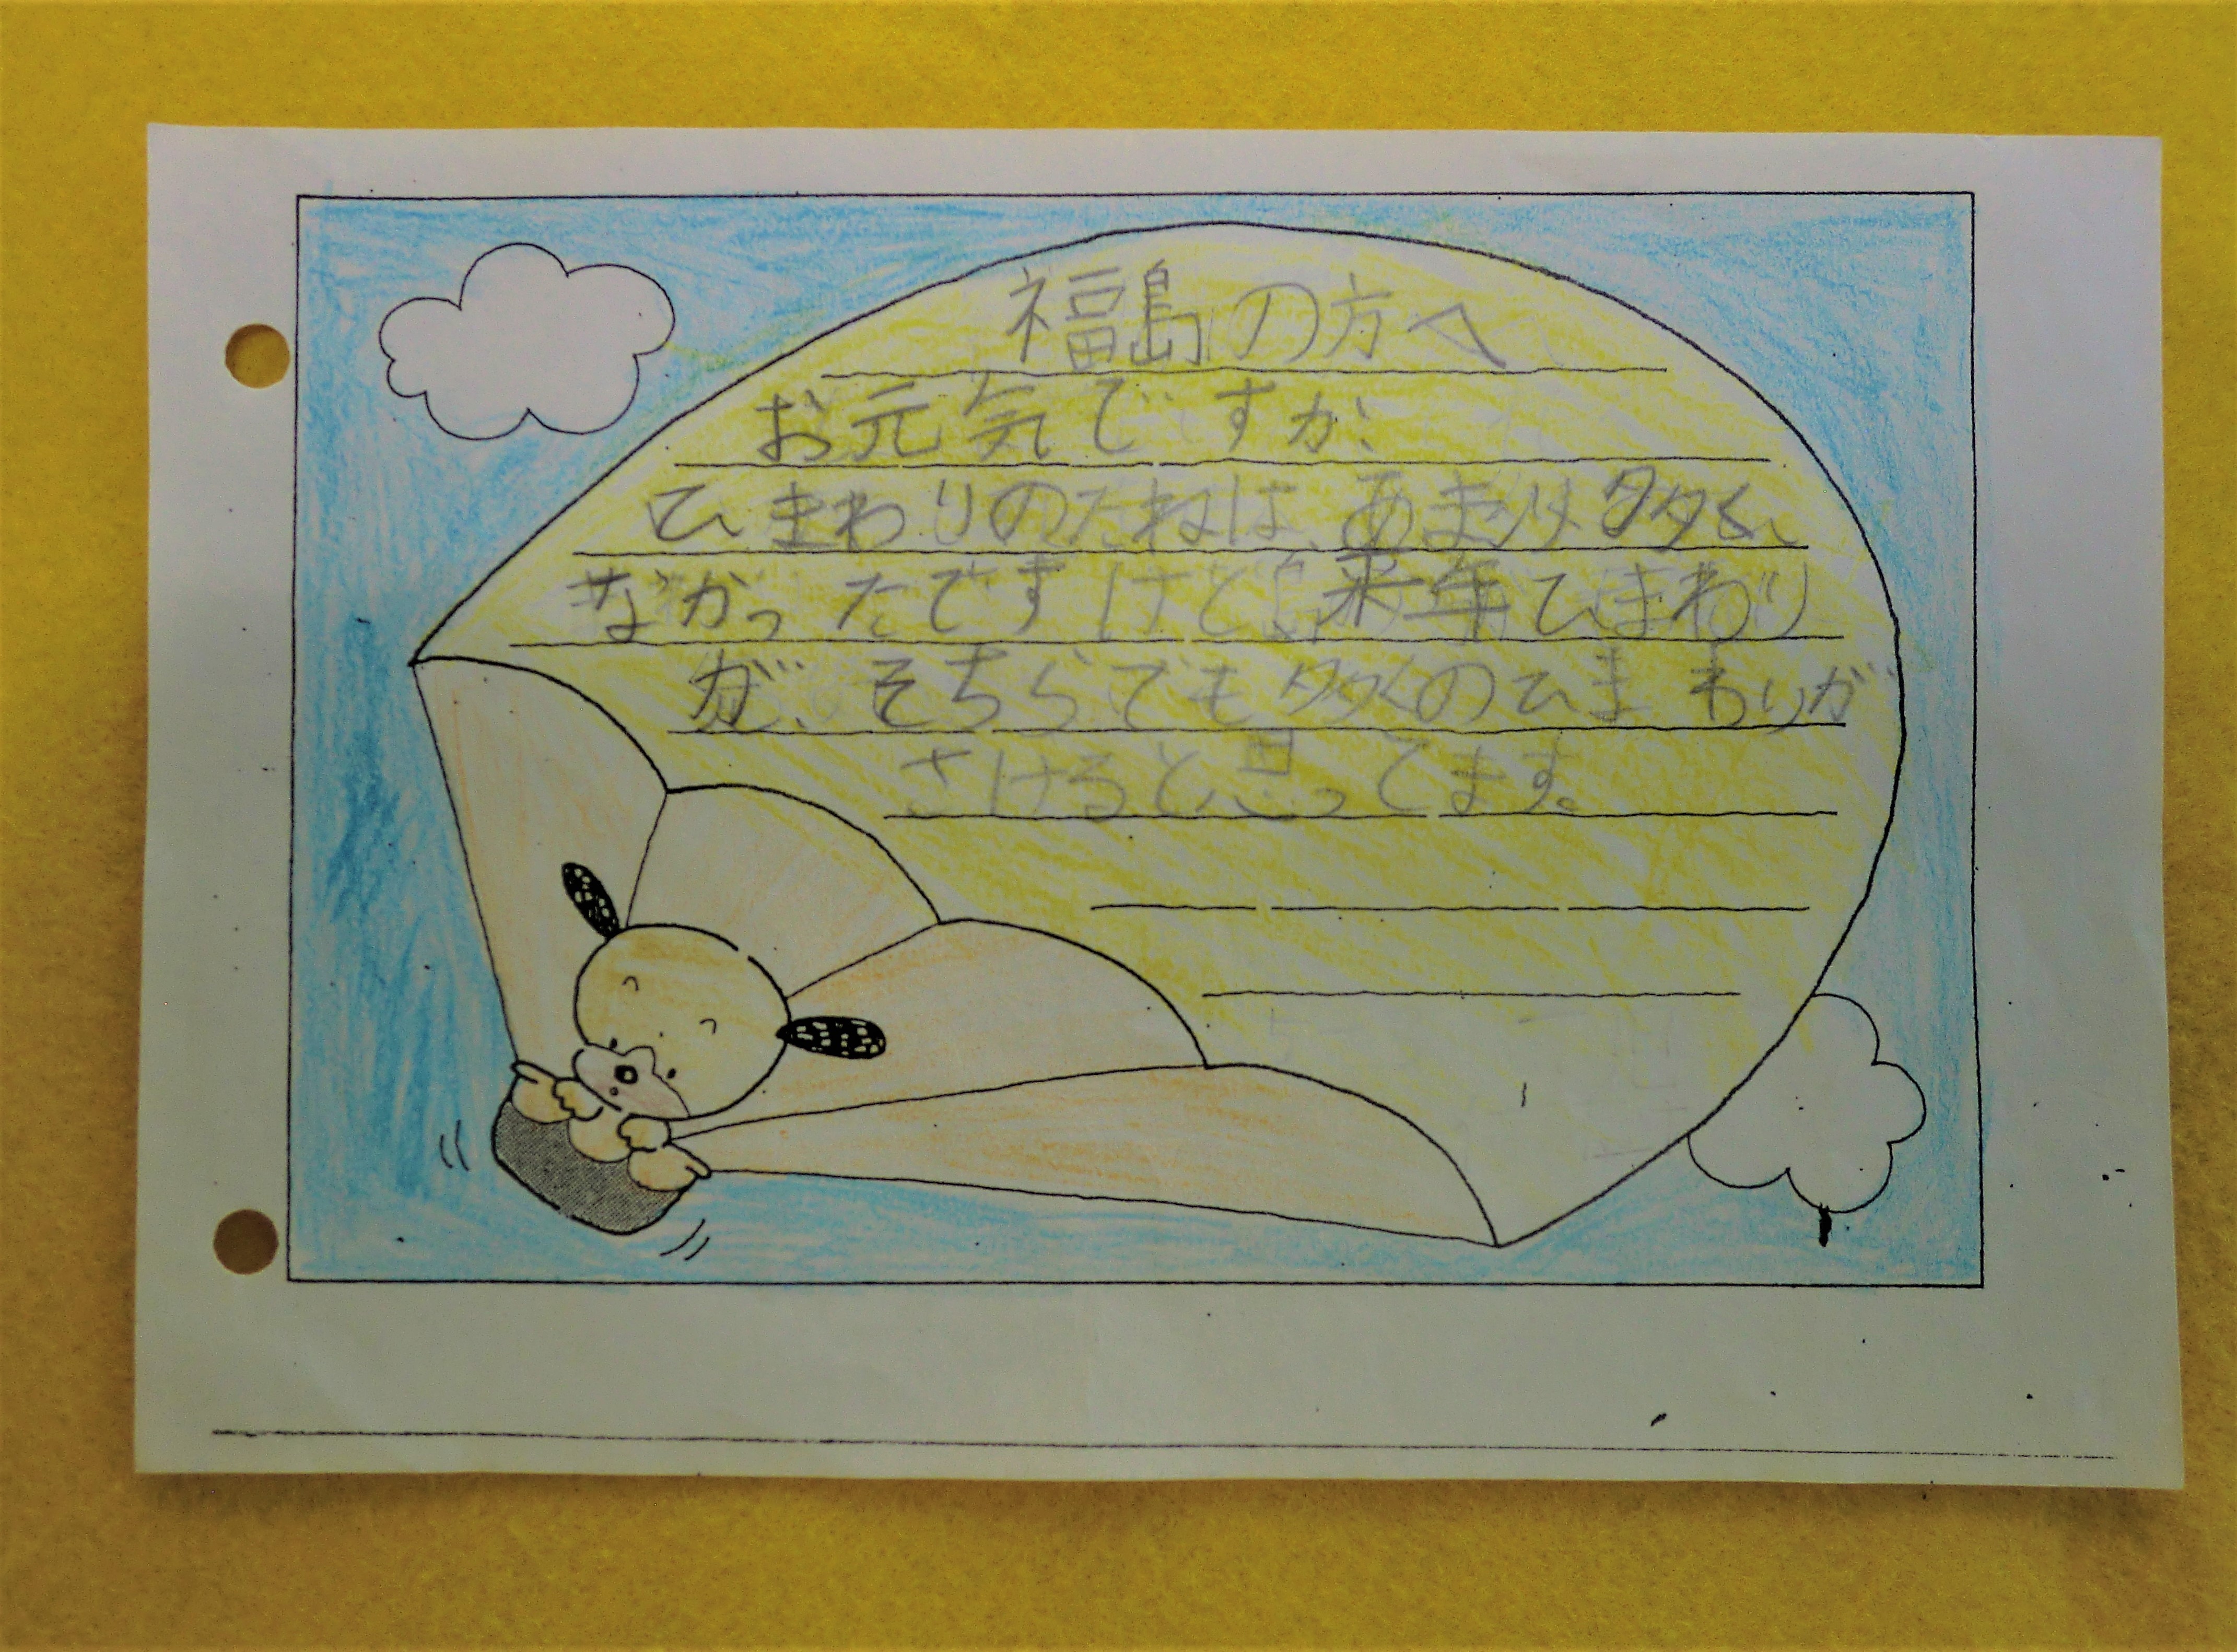 福島の方へ
お元気ですか、
ひまわりのたねは、あまり多く、
なかったですけど来年ひまわり
が、そちらでも多くのひまわりが
さけると思ってます。